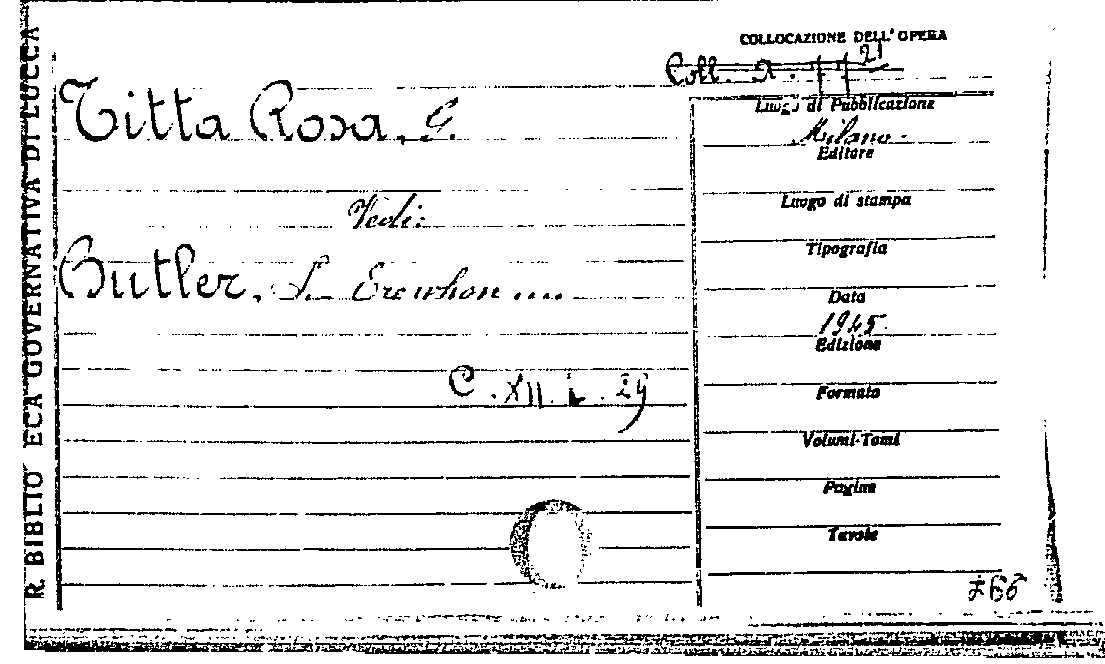 R. BIBLIO ECA GOVERNATIVA DI LUCCA
COLLOCAZIONE DELL'OPERA
21
Coll. 2.
Titta Rosa, G.
Vedi:
Butler, S. Erewhon ....
C. XII. L. 29
Luogo di Pubblicazione
Milano -
Editore
Luogo di stampa
Tipografia
Data
1945
Edizione
Formato
Volumi-Tomi
Pagine
Tavole